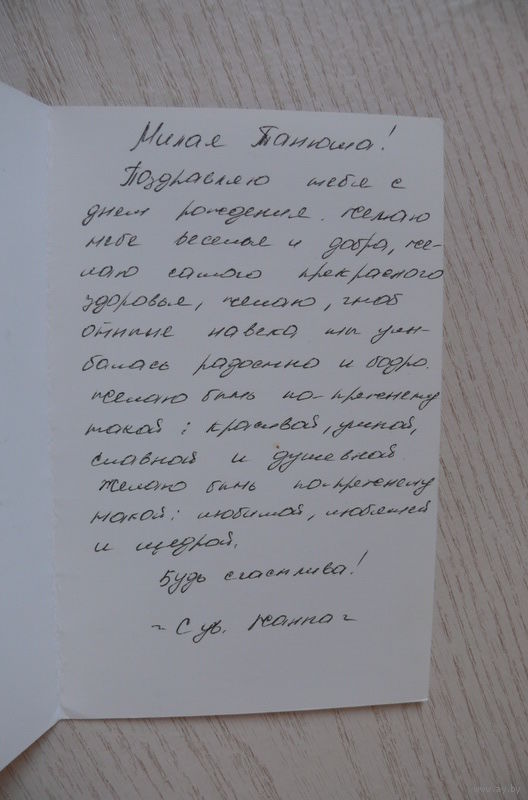 Милая Танюша!
Поздравляю тебя с
днем рождения. Желаю
тебе веселья и добра, же-
лаю самого прекрасного
здоровья, желаю, чтоб
отныне навека ты улы-
балась радостно и бодро.
Желаю быть по-прежнему
такой: красивой, умной,
славной и душевной.
Желаю быть по-прежнему
такой: любимой, любящей
и щедрой.
Будь счастлива!
~ С ув. Жанна ~
www.ay.by